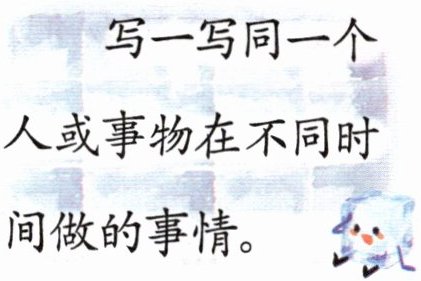 写一写同一个
人或事物在不同时
间做的事情。